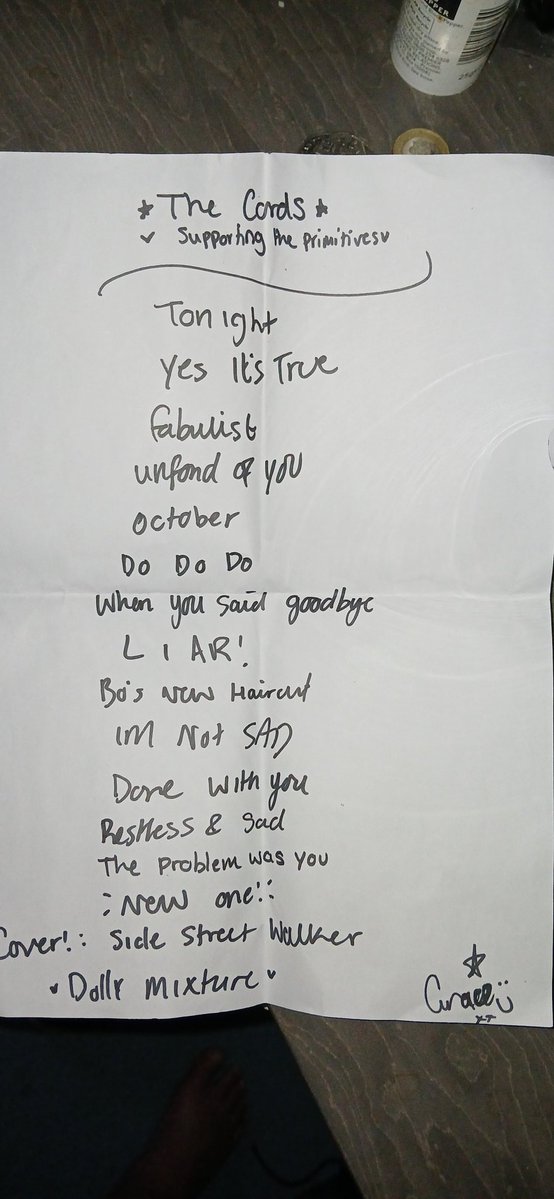 The Cords
Supporting the primitives
Tonight
Yes It's True
fabulist
unfond of you
october
Do Do Do
When you said goodbye
LIAR!
Bo's New Haircut
IM Not SAD
Done with you
Restless & Sad
The problem was you
NEW one!
Cover!: Side Street Walker
Dolly mixture
Grace